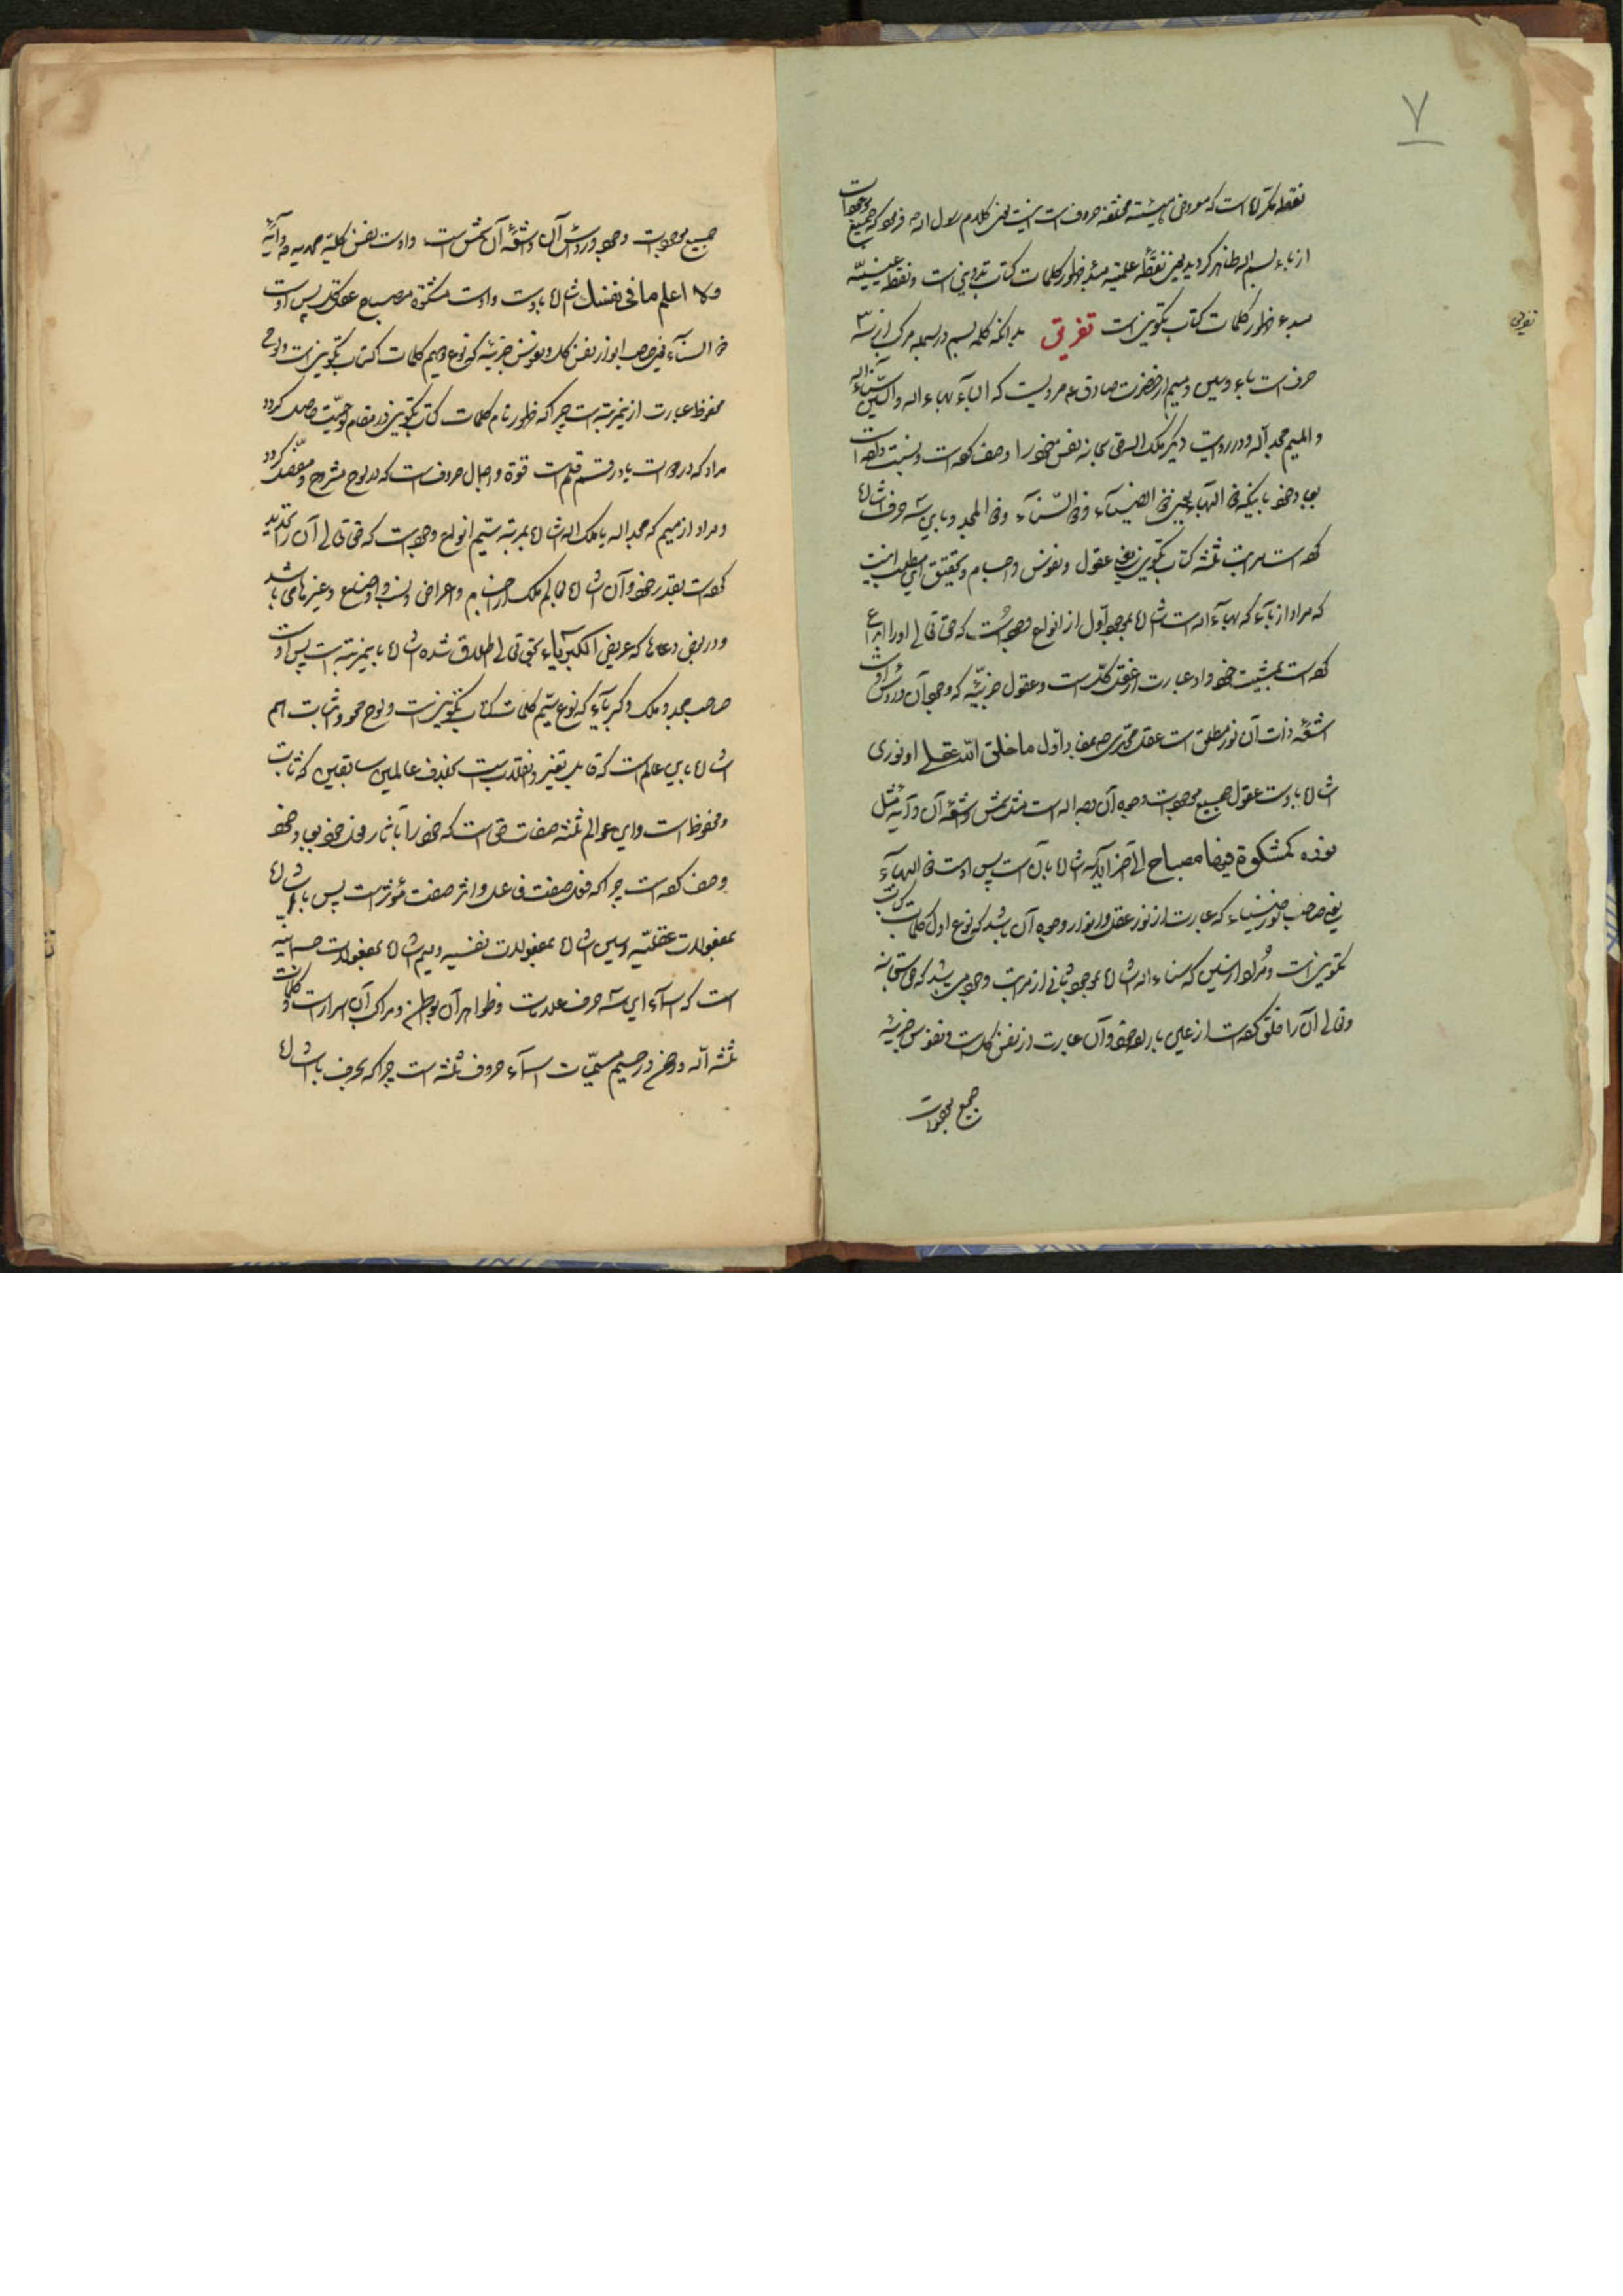 ۷
نقطه است که معروض هیئته مختلفه حروف است اینست معنی کلام رسول الله فرمود که جمیع موجودات
از باء بسم الله ظاهر گردید یعنی نقطه علمیه مبدء ظهور کلمات کتاب تدوینی است و نقطه عینیّه
مبدء ظهور کلمات کتاب تکوینی است تفریق بدانکه کلمه بسم در بسمله مرکب از سه
تفریق
حرف است باء و سین و میم از حضرت صادق ع مرویست که الباء بهاء الله و السّین سناء الله
و المیم مجد الله و در روایت دیگر ملک الله حق سبحانه نفس خود را وصف کرده است و نسبت داده است
بوجود خود باینکه ذی البهاء یعنی ذی الضیاء و ذی السّناء و ذی المجد و باین سه حرف اشاره
کرده است بمراتب ثلثه کتاب تکوینی یعنی عقول و نفوس و اجسام و تحقیق این مطلب اینست
که مراد از باء که بهاء الله است اشاره بوجود اوّل از انواع وجود است که حق تعالی او را ابداع
کرده است بمشیت خود و او عبارت از عقل کلّ است و عقول جزئیّه که وجود آن رؤس اوست
اشعّه ذات آن نور مطلق است عقل محمّدی ص و اوّل ما خلق الله عقلی او نوری
اشاره باوست عقول جمیع موجودات وجوه آن وجه الله است مثل شمس و اشعّه آن و آیه مثل
نوره کمشکوة فیها مصباح الی آخر الآیه اشاره بآن است پس اوست ذی البهاء
یعنی صاحب نور و ضیاء که عبارت از نور عقل و انوار وجوه آن باشد که نوع اول کلمات کتاب
تکوین است و مراد از سین که سناء الله اشاره بوجود ثانی از مراتب وجود می باشد که حق سبحانه
و تعالی آن را خلق کرده است از عین باراده خود و آن عبارت از نفس کل است و نفوس جزئیّه
جمیع موجودات
جمیع موجودات وجوه و رؤس آن و اشعّه آن شمس است و اوست نفس کلیّه محمدیه ص و آیه
و لا اعلم ما فی نفسک اشاره باوست و اوست مشکوة مصباح عقل کل پس اوست
ذی السناء یعنی صاحب انوار نفس کل و نفوس جزئیّه که نوع دویم کلمات کتاب تکوین است و لوح
محفوظ عبارت از این مرتبه است چرا که ظهور تمام کلمات کتاب تکوین در مقام لوحیّت حاصل گردد
مداد که در دوات یا در قلم است قوة و اجمال حروف است که در لوح مشروح و مفصّل گردد
و مراد از میم که مجد الله یا ملک الله اشاره بمرتبه سیّم انواع وجود است که حق تعالی آن را تحدید
کرده است بقدر خود و آن اشاره بعالم ملک از اجسام و اعراض و نسب و اوضاع و غیرها می باشد
و در بعض دعاها که عریض الکبریاء بحق تعالی اطلاق شده اشاره باین مرتبه است پس اوست
صاحب مجد و ملک و کبریاء که نوع سیّم کلمات کتاب تکوین است و لوح محو و اثبات هم
اشاره باین عالم است که قابل تغیر و تبدل است بخلاف عالمین سابقین که ثابت
و محفوظ است و این عوالم ثلثه صفات حق است که خود را بآثار و فعل خود بوجود خود
وصف کرده است چرا که فعل صفت فاعل و اثر صفت مؤثر است پس با اشاره
بمفعولات عقلیّه و سین اشاره بمفعولات نفسیه و میم اشاره بمفعولات جسمانیه
است که اسماء این سه حرف علامات و ظواهر آن بواطن و مراکب آن اسرار است و کلمات
ثلثه الله و رحمن و رحیم مسمّیات اسماء حروف ثلثه است چرا که بحرف با اشاره